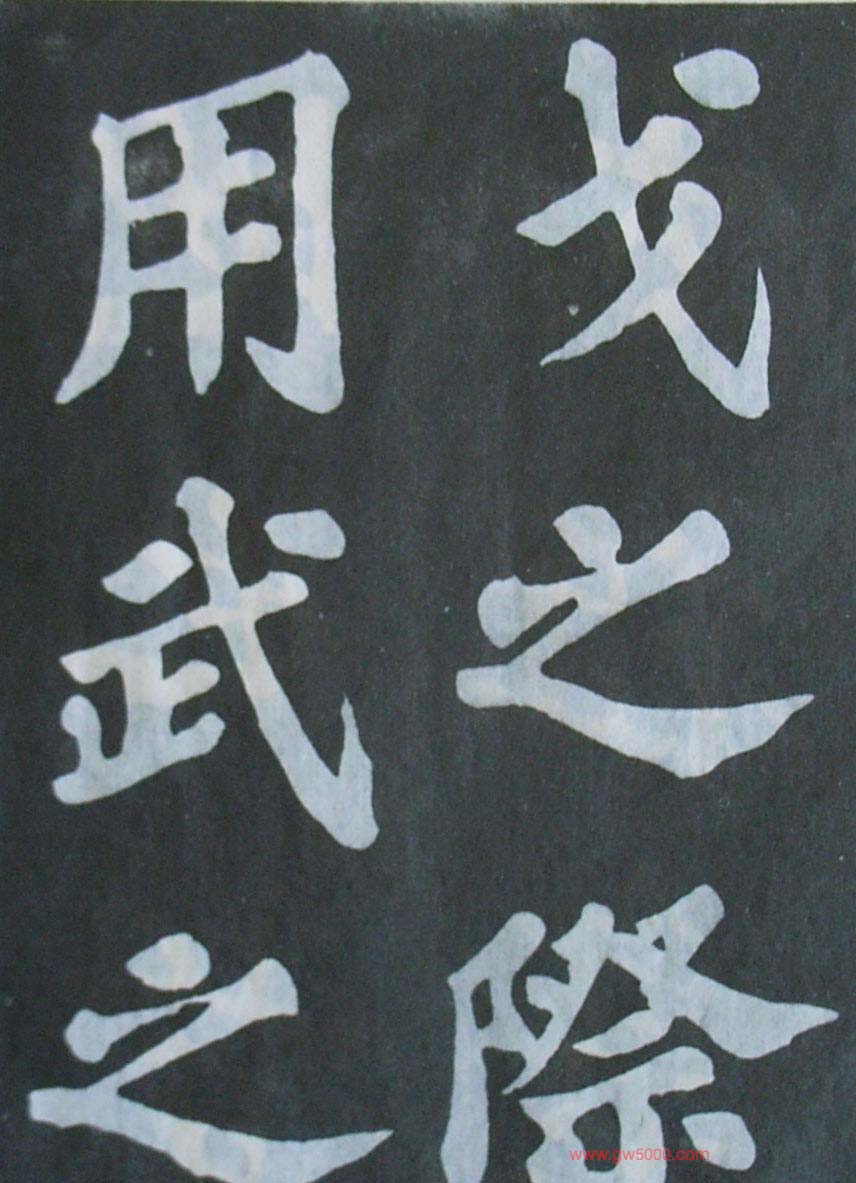 戈之際
用武之
www.gw5000.com